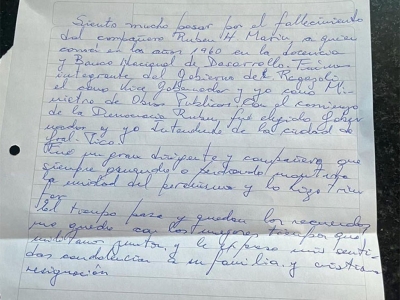 Siento mucho pesar por el fallecimiento
del compañero Ruben H Marin, a quien
conocí en los años 1960 en la docencia
y Banco Nacional de Desarrollo. Fuimos
integrante del Gobierno del Regazzoli
el como Vice Gobernador y yo como Mi-
nistro de Obras Publicas. Con el comienzo
de la Democracia Ruben, fue elegido Gober
nador y yo Intendente de la ciudad de
Gral. Pico
Fué un gran dirigente y compañero, que
siempre ganando o perdiendo mantuvo
la unidad del peronismo y lo hizo triun
far
El tiempo pasa y quedan los recuerdos
me quedo con los mejores tiempos que
militamos juntos, y le expreso mis senti
das condolencias a su familia, y cristiana
resignación